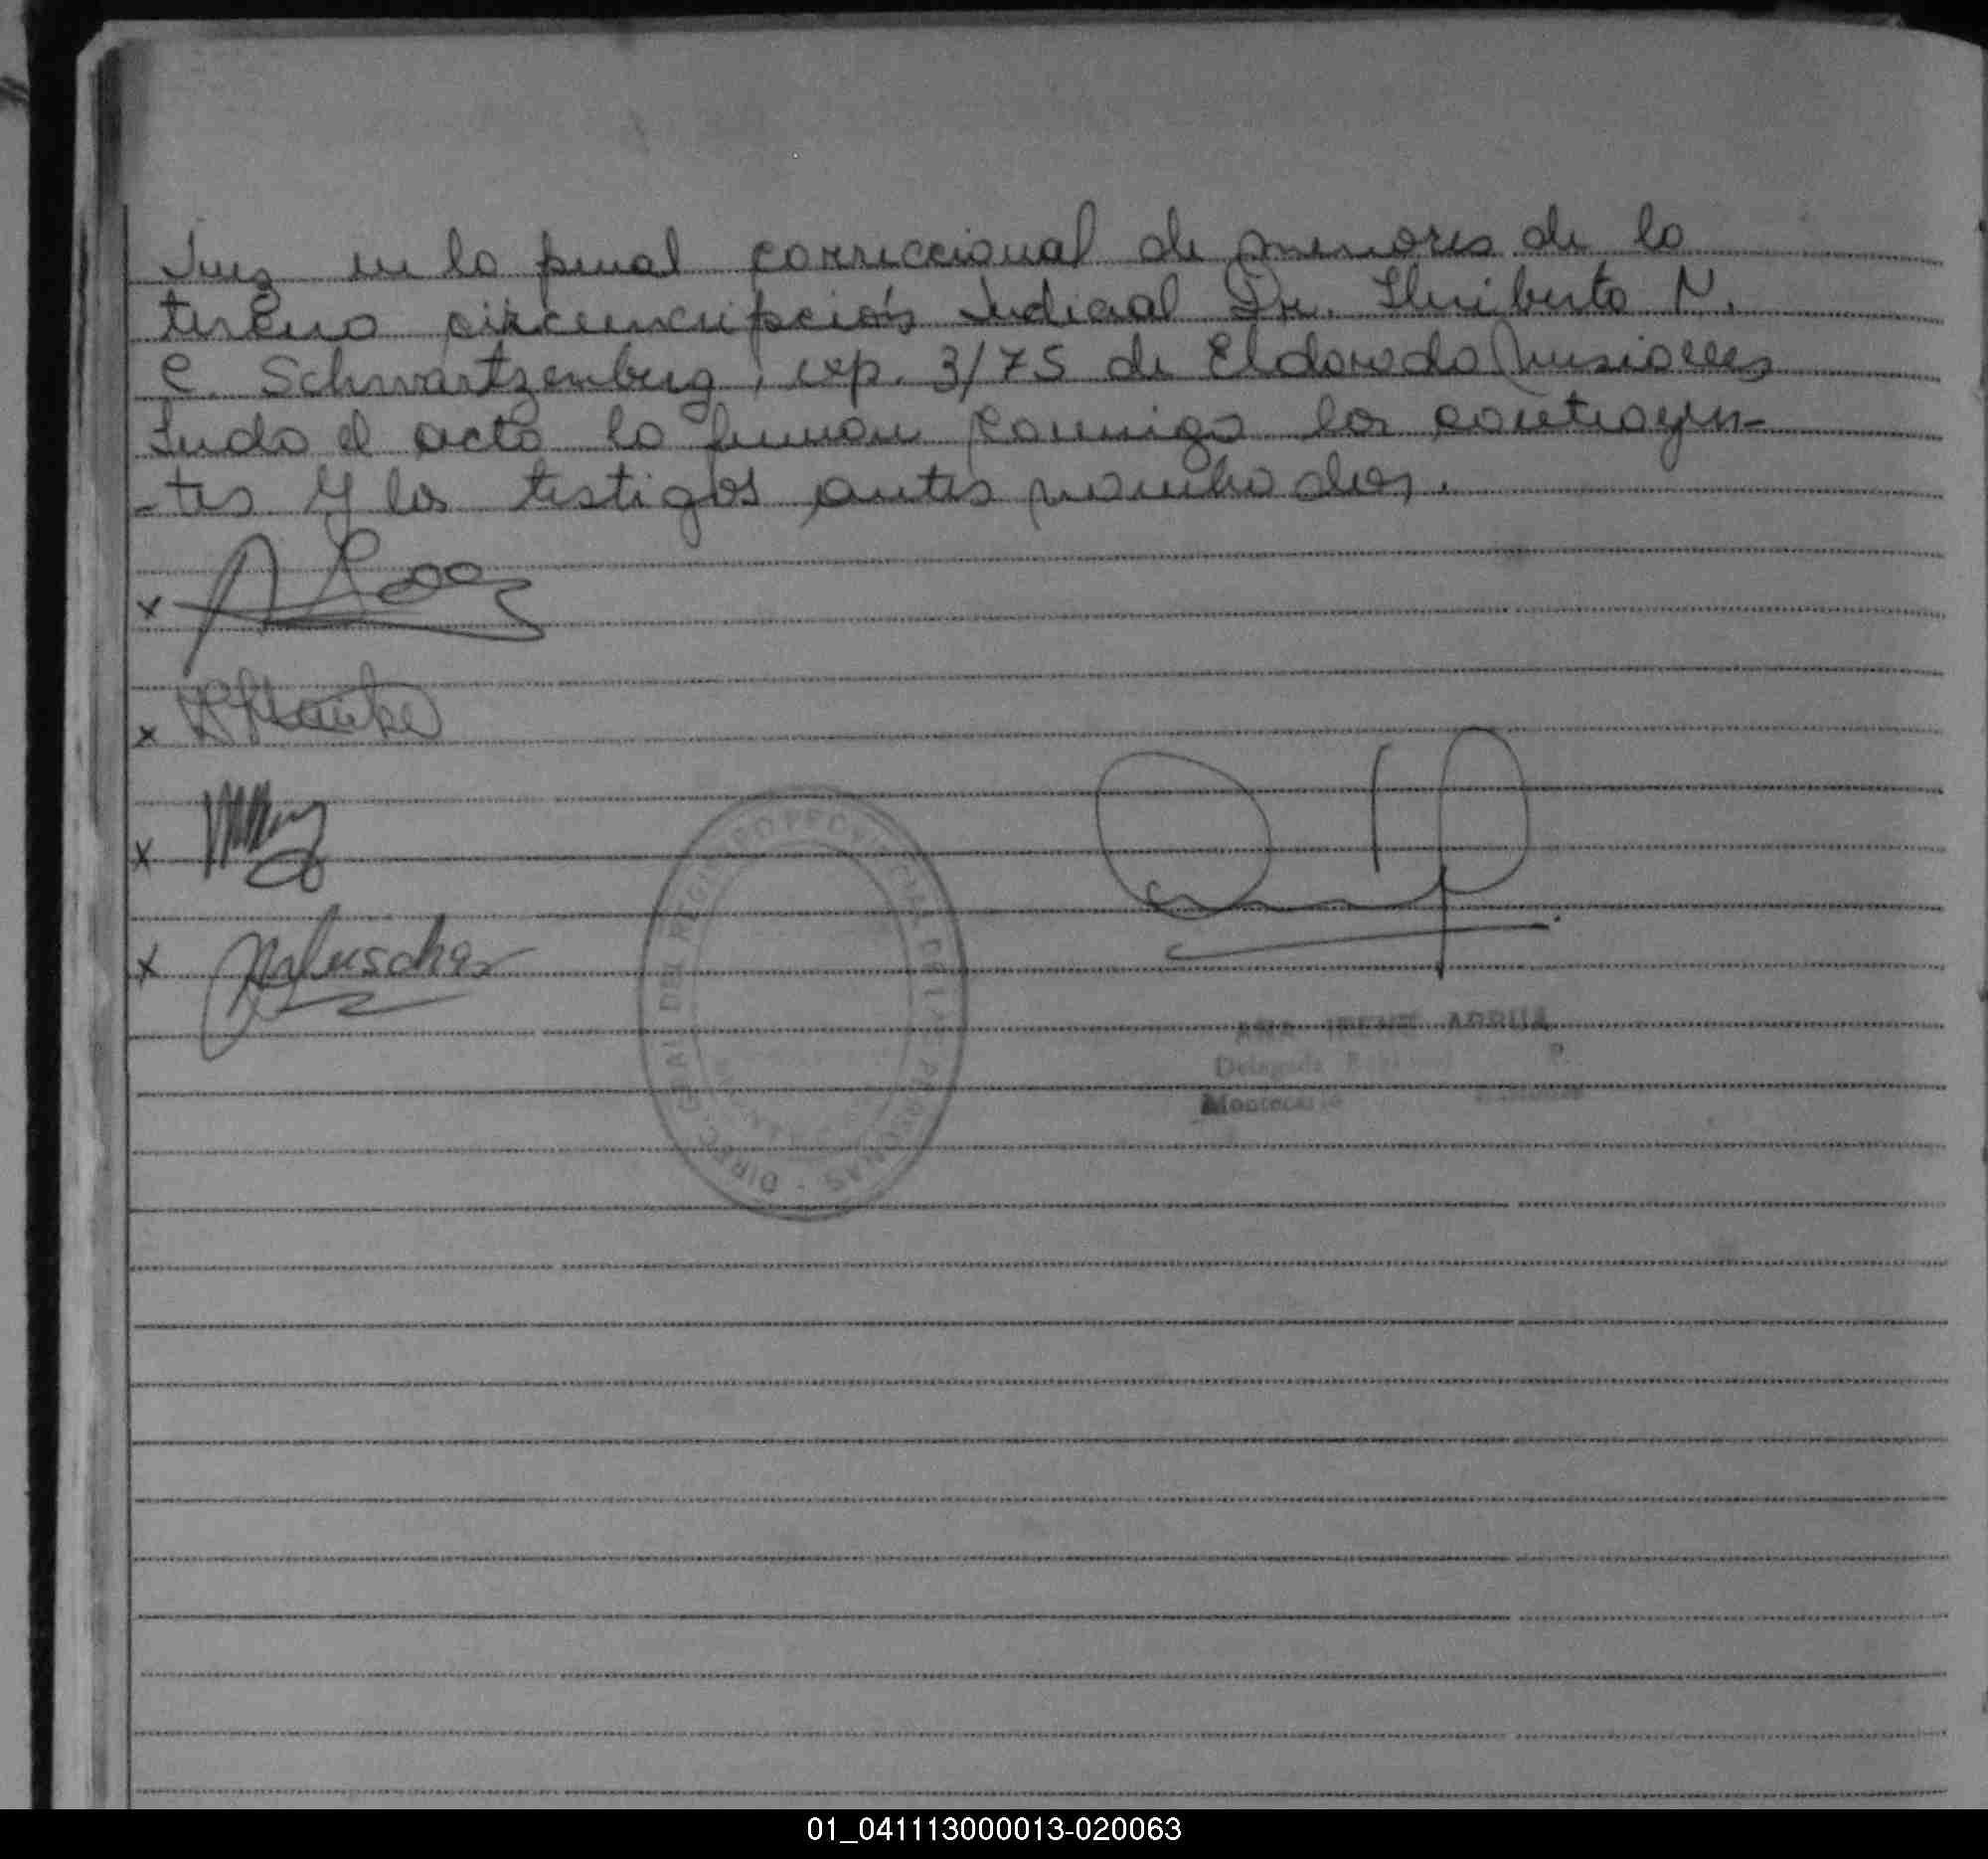 Juez en lo penal correccional de menores de la
tercera circuncripción Judicial Dr. Heriberto N.
C. Schwartzenberg, exp. 3/75 de Eldorado Misiones
Leida el acta la firman conmigo los contrayen-
-tes y los testigos antes nombrados.
x
x
x
x
DIREC. GRAL DEL REGISTRO PROVINCIAL DE LAS PERSONAS -
ANA IRENE ARRUA
Delegada
Montecarlo Misiones
01_041113000013-020063